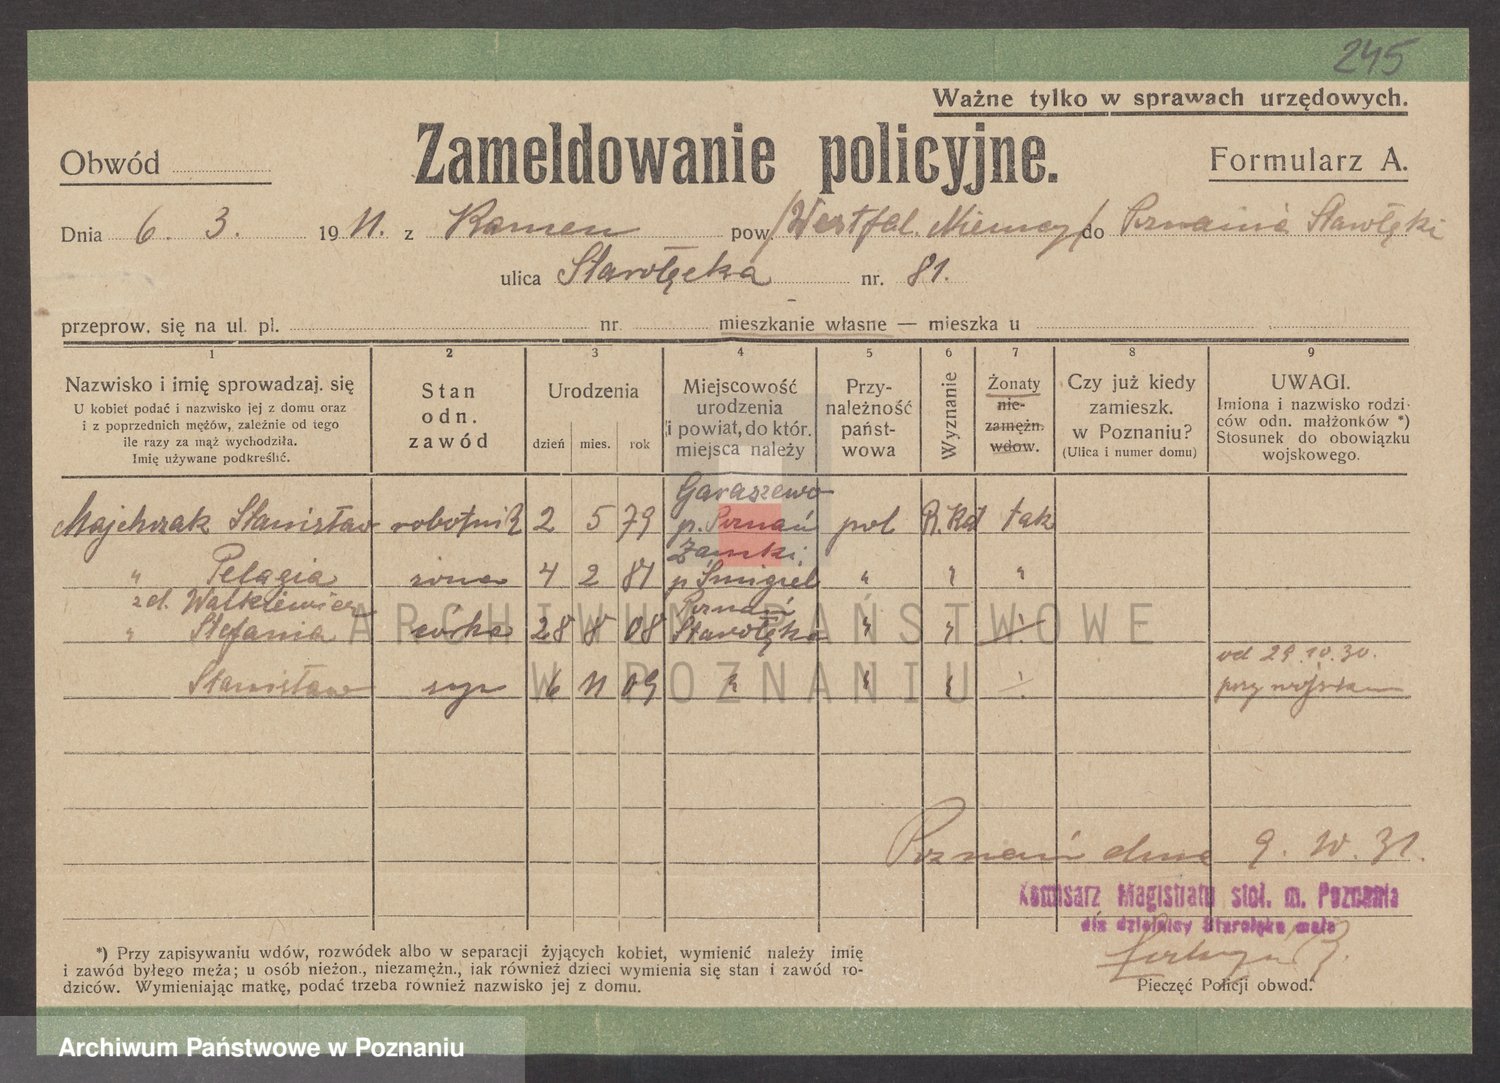 245
Ważne tylko w sprawach urzędowych.
Obwód
Zameldowanie policyjne.
Formularz A.
Dnia 6. 3. 1911. z Kamen pow. /Westfal. Niemcy/ do Poznania Starołęki
ulica Starołęcka nr. 81.
przeprow. się na ul. pl. nr. mieszkanie własne — mieszka u
1 2 3 4 5 6 7 8 9
Nazwisko i imię sprowadzaj. się
U kobiet podać i nazwisko jej z domu oraz
i z poprzednich mężów, zależnie od tego
ile razy za mąż wychodziła.
Imię używane podkreślić.
Stan
odn.
zawód
Urodzenia
dzień mies. rok
Miejscowość
urodzenia
i powiat, do któr.
miejsca należy
Przy-
należność
państ-
wowa
Wyznanie
Żonaty
nie-
zamężn.
wdow.
Czy już kiedy
zamieszk.
w Poznaniu?
(Ulica i numer domu)
UWAGI.
Imiona i nazwisko rodzi-
ców odn. małżonków *)
Stosunek do obowiązku
wojskowego.
Garaszewo
Majchrzak Stanisław robotnik 2 5 79 p. Poznań pol R. Kat tak
Żamki
" Pelagia żona 4 2 81 p Śmigiel " " "
zd. Walkiewicz Poznań
" Stefania córka 28 8 08 Starołęka " "
od 29.10.30.
Stanisław syn 6 11 09 " " " przy wojsku
Poznań dnia 9. 10. 31.
Komisarz Magistratu stoł. m. Poznania
dla dzielnicy Starołęka mała
*) Przy zapisywaniu wdów, rozwódek albo w separacji żyjących kobiet, wymienić należy imię
i zawód byłego męża; u osób nieżon., niezamężn., jak również dzieci wymienia się stan i zawód ro-
dziców. Wymieniając matkę, podać trzeba również nazwisko jej z domu.
Pieczęć Policji obwod.
ARCHIWUM PAŃSTWOWE
W POZNANIU
Archiwum Państwowe w Poznaniu